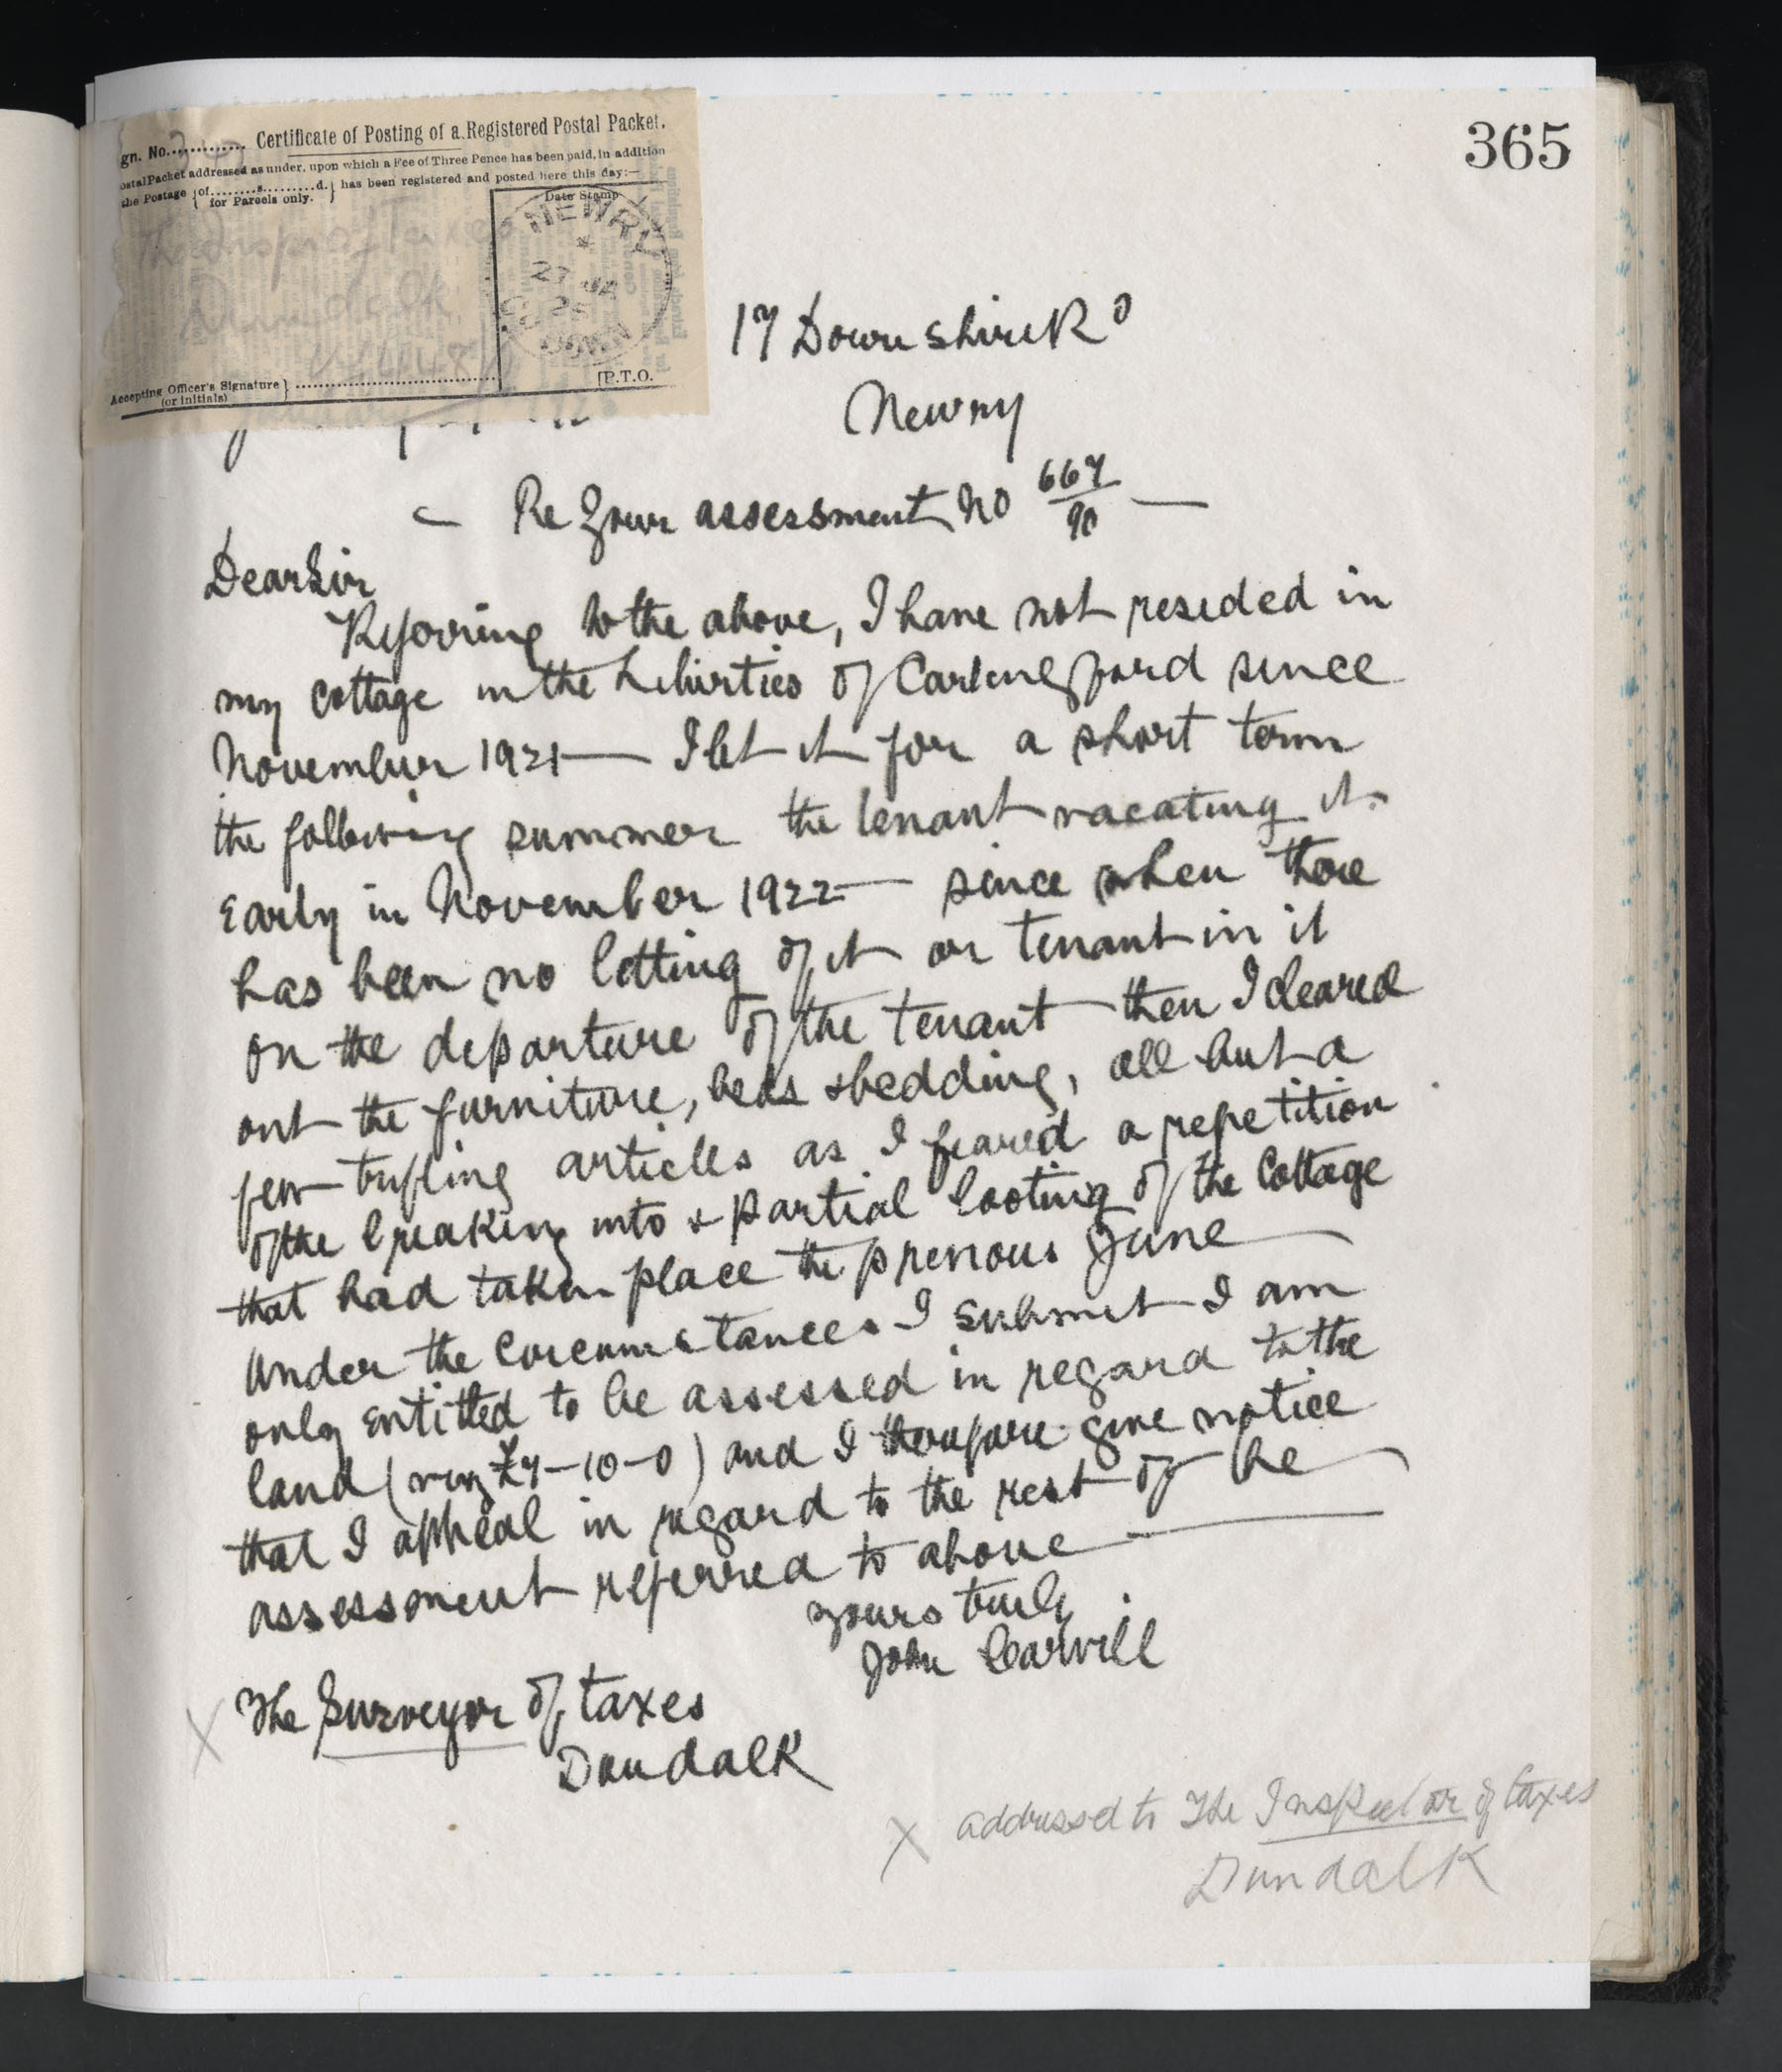 365
gn. No............. Certificate of Posting of a Registered Postal Packet.
ostal Packet addressed as under, upon which a Fee of Three Pence has been paid, in addition
the Postage { of........s..........d. } has been registered and posted here this day:—
for Parcels only.
Date Stamp
NEWRY
27 JA
25
DOWN
The Insp of Taxes
Dundalk
Accepting Officer's Signature } ........................................
(or initials)
[P.T.O.
17 Downshire Rd
Newry
— Re Your assessment No 667/90 —
Dear Sir
Referring to the above, I have not resided in
my cottage in the Liberties of Carlingford since
November 1921 — I let it for a short term
the following summer the tenant vacating it
Early in November 1922 — since when there
has been no letting of it or tenant in it
on the departure of the tenant then I cleared
out the furniture, beds & bedding, all but a
few trifling articles as I feared a repetition
of the breaking into & partial looting of the Cottage
that had taken place the previous June —
Under the Circumstances I submit I am
only Entitled to be assessed in regard to the
land (viz £7-10-0) and I therefore give notice
that I appeal in regard to the rest of he
assessment referred to above —
yours truly
John Carvill
X The Surveyor of taxes
Dundalk
X addressed to The Inspector of taxes
Dundalk